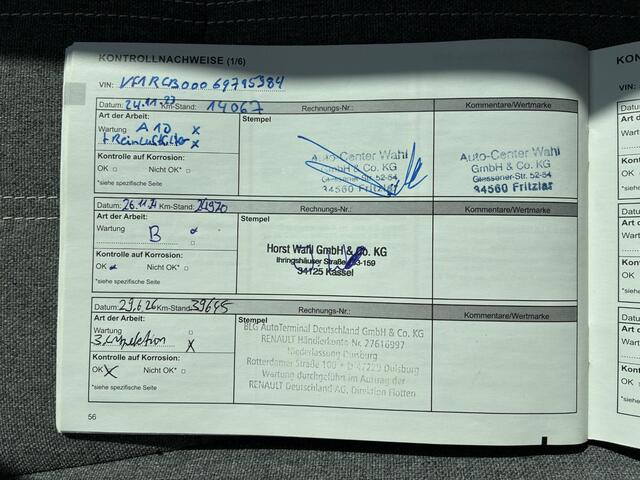 KONTROLLNACHWEISE (1/6)
KON
VIN: VF1RCB00069795384
Datum: 24.11.23 Km-Stand: 14067 Rechnungs-Nr.: Kommentare/Wertmarke
Art der Arbeit: Stempel
Wartung A10 x
+ Reinluftfilter x
Kontrolle auf Korrosion:
OK □ Nicht OK* □
*siehe spezifische Seite
Auto-Center Wahl
GmbH & Co. KG
Giessener-Str. 52-54
34560 Fritzlar
Auto-Center Wahl
GmbH & Co. KG
Giessener-Str. 52-54
34560 Fritzlar
Datum: 26.11.24 Km-Stand: 24920 Rechnungs-Nr.: Kommentare/Wertmarke
Art der Arbeit: Stempel
Wartung B
Kontrolle auf Korrosion:
OK Nicht OK* □
*siehe spezifische Seite
Horst Wahl GmbH & Co. KG
Ihringshäuser Straße
34125 Kassel
Datum: Km-Stand: Rechnungs-Nr.: Kommentare/Wertmarke
Art der Arbeit: Stempel
Wartung □
3. Inspektion X
Kontrolle auf Korrosion:
OK X Nicht OK* □
*siehe spezifische Seite
BLG AutoTerminal Deutschland GmbH & Co. KG
RENAULT Händlerkonto Nr. 27616997
Niederlassung Duisburg
Rotterdamer Straße 100 • D-47229 Duisburg
Wartung durchgeführt im Auftrag der
RENAULT Deutschland AG, Direktion Flotten
56